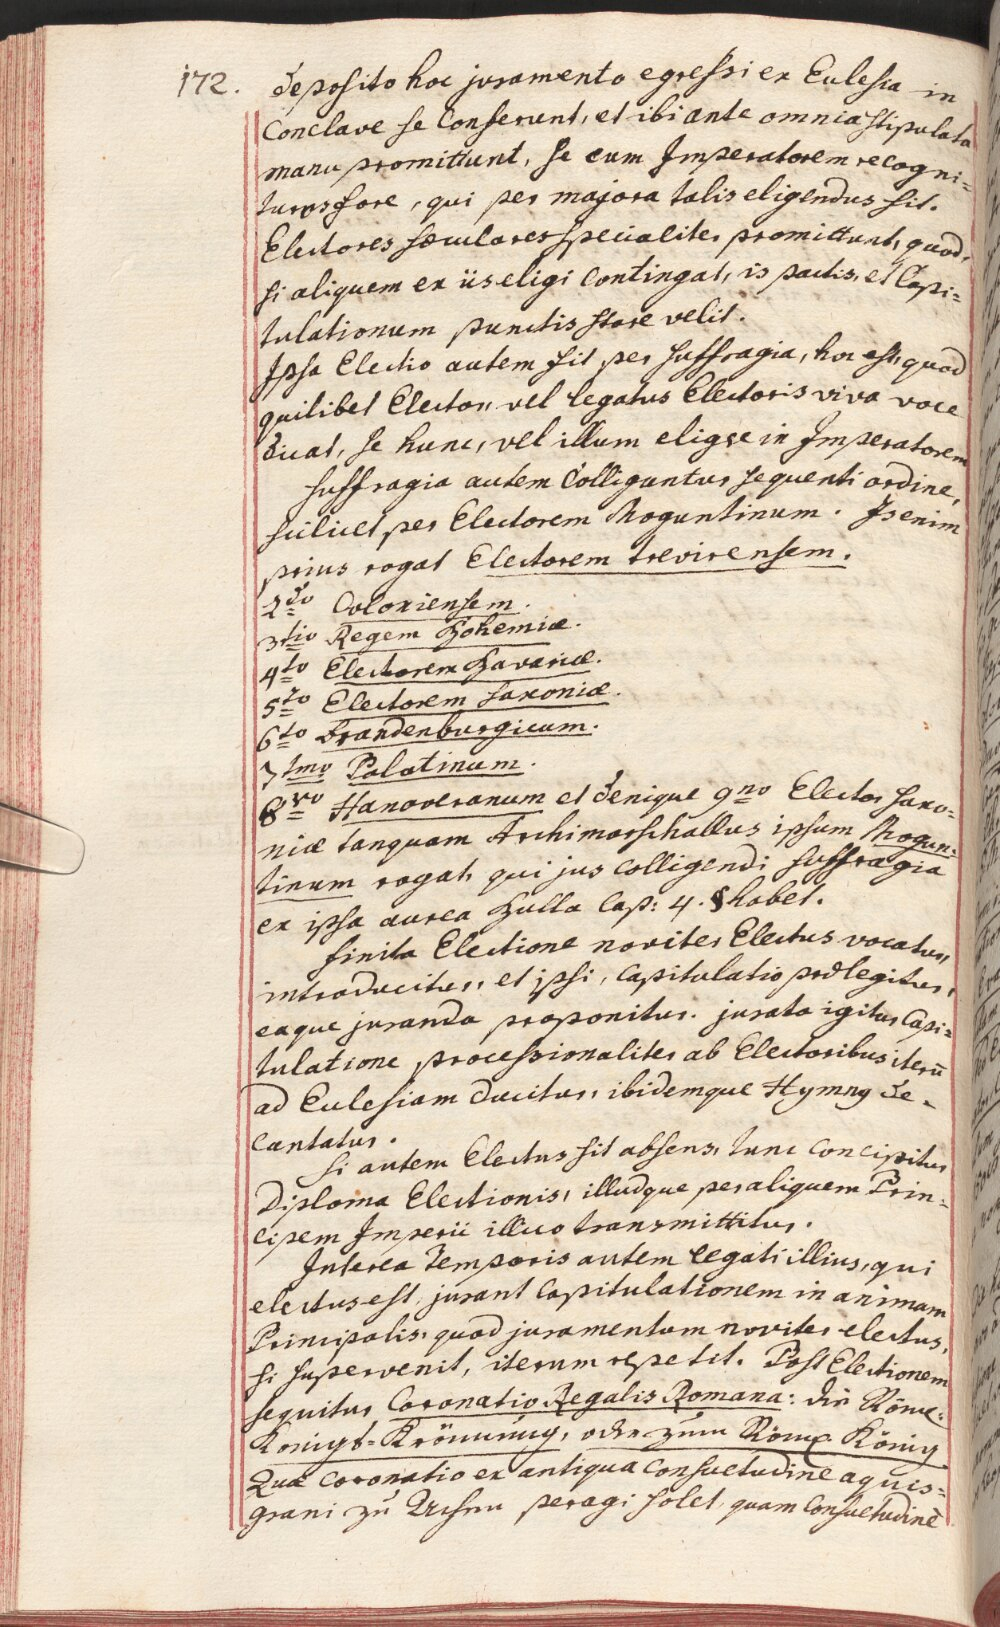 172. deposito hoc juramento egressi ex Eclesia in
Conclave se Conferunt, et ibi ante omnia stipulata
manu promittunt, se eum Imperatorem recogni=
turos fore, qui per majora talis eligendus sit.
Electores sæculares specialiter promittunt, quod,
si aliquem ex iis eligi Contingat, is pactis, et Capi=
tulationum punctis stare velit.
Ipsa Electio autem fit per suffragia, hoc est, quod
quilibet Elector, vel legatus Electoris viva voce
dicat, se hunc, vel illum eligere in Imperatorem
suffragia autem Colliguntur sequenti ordine,
scilicet per Electorem Moguntinum. Is enim
prius rogat Electorem trevirensem.
2do Coloniensem.
3tio Regem Bohemiæ.
4to Electorem Bavariæ.
5to Electorem saxoniæ.
6to Brandenburgicum.
7tmo Palatinum.
8vo Hanoveranum et denique 9no Elector saxo=
niæ tanquam Archimarschallus ipsum Mogun=
tinum rogat, qui jus colligendi suffragia
ex ipsa aurea Bulla Cap: 4. § habet.
finita Electione noviter Electus vocatur,
introducitur, et ipsi, Capitulatio prælegitur,
eaque juranda proponitur. jurata igitur Capi=
tulatione processionaliter ab Electoribus iterū
ad Eclesiam ducitur, ibidemque Hymng de=
cantatur.
si autem Electus sit absens, tunc concipitur
Diploma Electionis, illudque per aliquem Prin=
cipem Imperii illuc transmittitur.
Interea temporis autem legati illius, qui
electus est, jurant Capitulationem in animam
Principalis, quod juramentum noviter electus,
si supervenit, iterum repetit. Post Electionem
sequitur Coronatio Regalis Romana: die Röme:
Königs-Krönung, oder zum Röme König
Quæ coronatio ex antiqua Consuetudine aquis=
grani zu Achen peragi solet, quam Consuetudinē